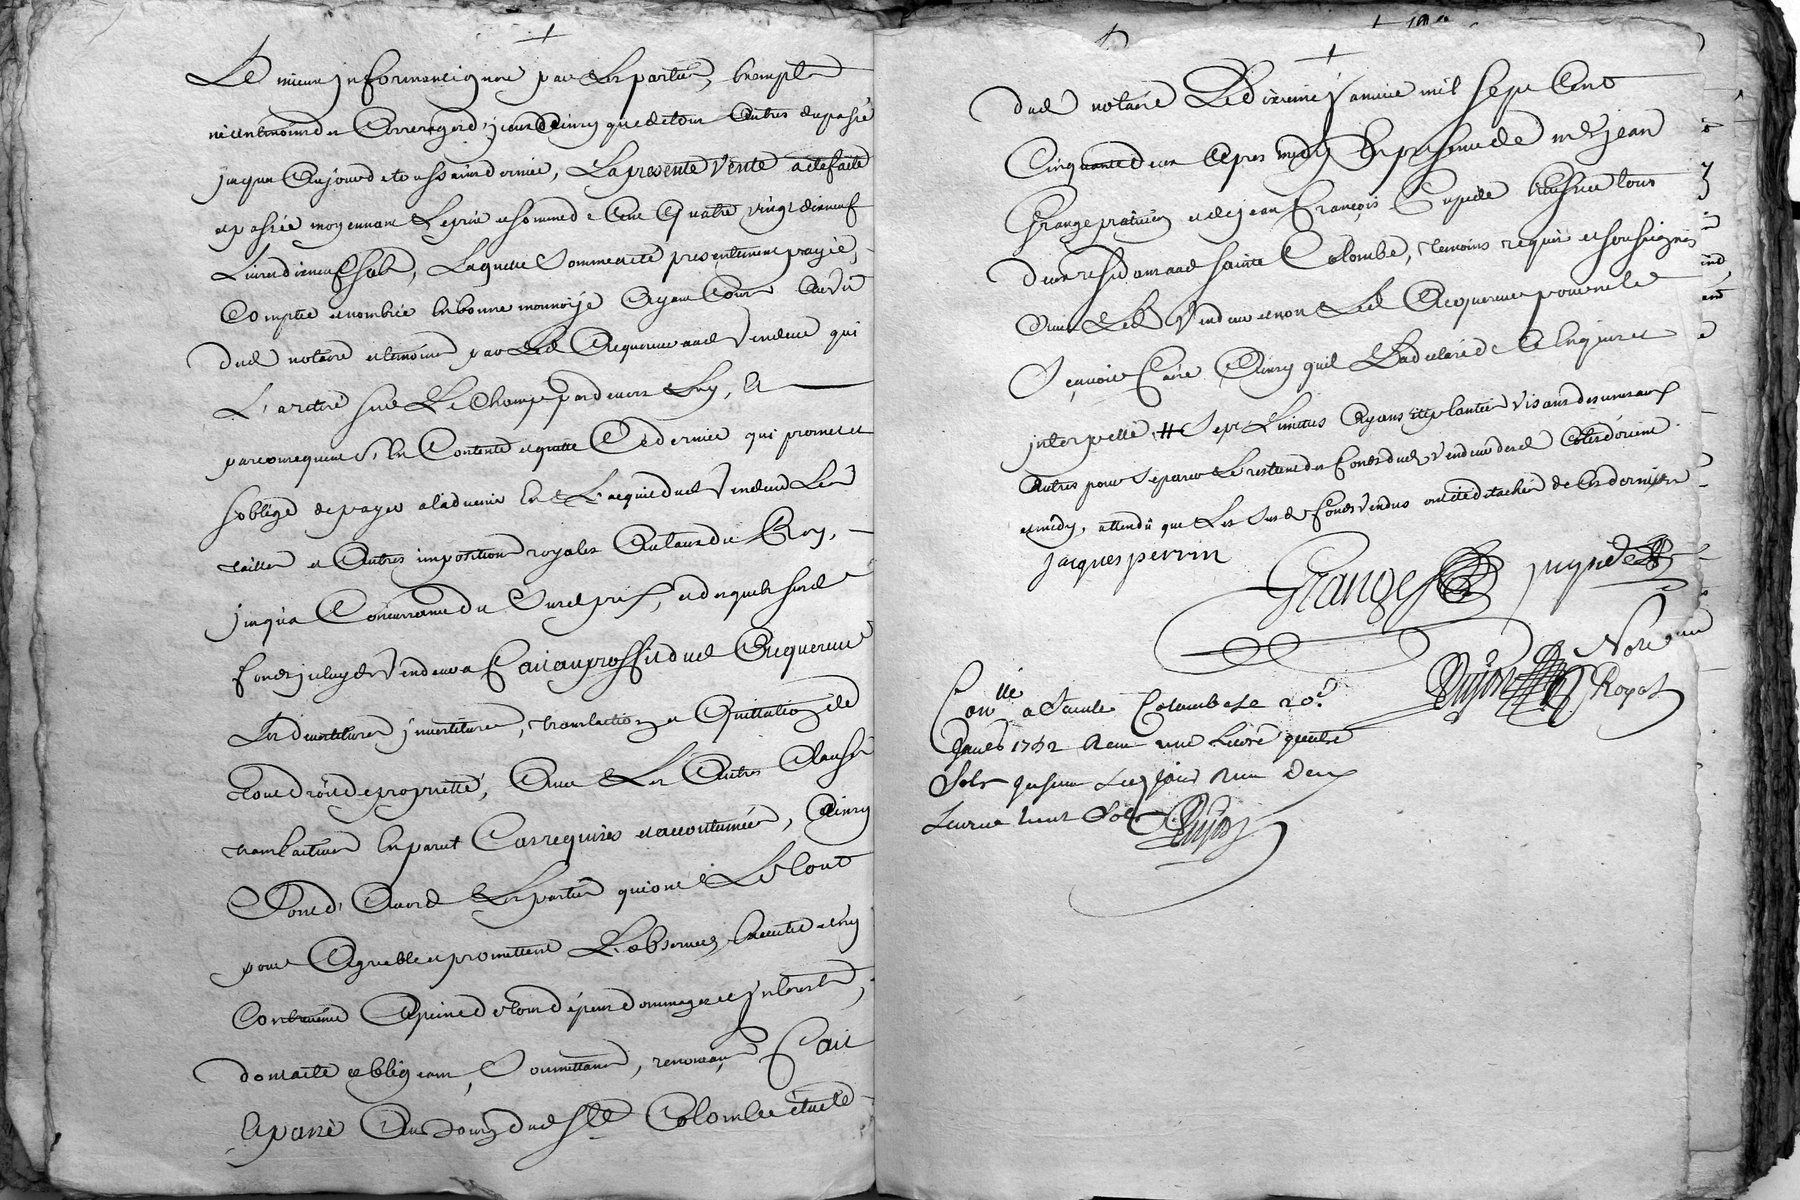 Le mieux informement ignoré par Les parties, Exempts
néantmoins des Arrerages d'jceux Cens que de tous Autres du passé
jusqua Aujourd et toussaint dernier, La presente Vente a eté faite
et passée moyennant Le prix et somme de Cent Quatre vingt dixneuf
Livres dixneuf sols, Laquelle Somme a eté presentement payée,
Comptée et nombrée en bonne monnoÿe Ayant Cours Au vû
dud notaire et temoins par Led Acquereur aud Vendeur qui
L'a retiré sur Le Champ pardevers Luy, et
par consequent S'en Contente et quitte Ce dernier qui promet et
s'oblige de payer a l'advenir en L'acquit dud Vendeur Les
tailles et Autres impositions royales Au taux du Roy,
jusqua Concurrance du Susd prix, et desquels susd
fonds jceluyd Vendeur a fait au proffit dud Acquereur
Les devestitures jnvestitures, translation et Quittation de
tout droit de proprietté, Avec Les Autres Clauses
translatives En pareil Cas requises et accoutumées, Ainsy
Convenu Accord Les parties qui ont Le tout
pour Agreable et promettent L'observer, Executer et n'y
Contrevenir A peine de tous dépens dommages et jnterests,
dont acte obligeant, Soumettant, renonçant, Fait
Et passé Au Bourg dud Ste Colombe etude
dud notaire Le dixieme Janvier mil Sept Cent
Cinquante deux Apres midy En presence de mr jean
Grange praticien et de jean François Pupide tous
deux residants aud Sainte Colombe, temoins requis et soussignés
Avec Led Vendeur et non Led Acquereur pour ne le
Sçavoir faire Ainsy quil L'a declaré de Ce Enquis et
interpellé, # Sept Limittes Ayans eté plantées visans des unes aux
Autres pour Separer Le restant des fonds dud Vendeur des Cotés d'orient
et midy, attendû que Les Susd fonds Vendus ont eté detachés de Ces derniers
jacques perrin
Grange pupide
Dujost Nore
Royal
Conllé a Sainte Colombe Le 20e
Janer 1752 Recu une Livre quatre
Sols
Livres huit Sols Dujost